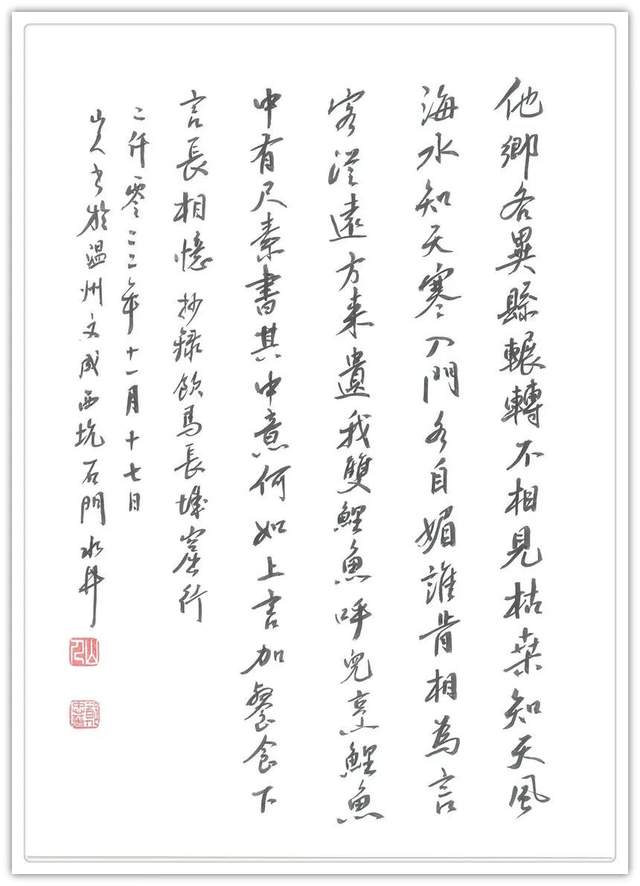 他鄉各異縣輾轉不相見枯桒知天風
海水知天寒入門各自媚誰肯相為言
客從遠方来遺我雙鯉魚呼兒烹鯉魚
中有尺素書其中意何如上言加餐食下
言長相憶 抄錄飲馬長城窟行
二仟零二二年十一月十七日
山人书於温州文成西坑石門水井
山人